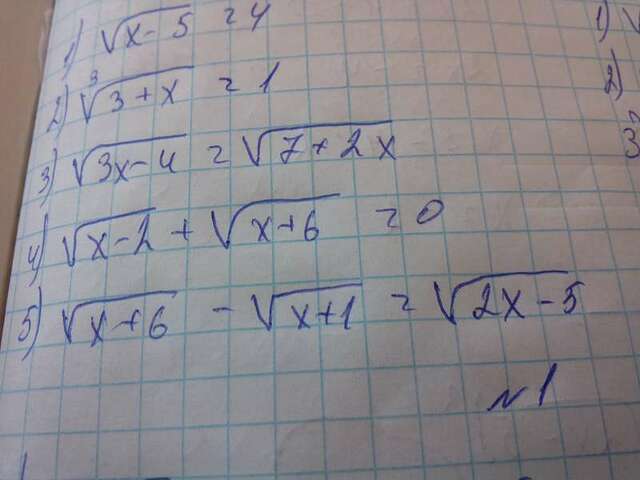 1) √x-5 = 4
2) ∛3+x = 1
3) √3x-4 = √7+2x
4) √x-2 + √x+6 = 0
5) √x+6 - √x+1 = √2x-5
№1
1) √
2)
3